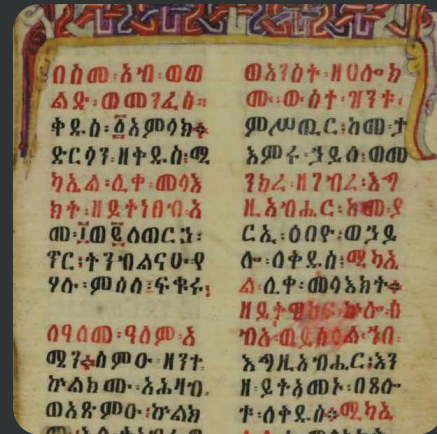 በስመ፡አብ፡ወወ
ልድ፡ወመንፈስ፡
ቅዱስ፡፩አምላክ።
ድርሳን፡ዘቅዱስ፡ሚ
ካኤል፡ሊቀ፡መላእ
ክት፡ዘይትነበብ፡አ
መ፡፲ወ፪ለወርኃ፡
ኅዳር፡ትንብልናሁ፡የ
ሃሉ፡ምስለ፡ፍቁሩ፡
ለዓለመ፡ዓለም፡አ
ሜን።ስምዑ፡ዘንተ
ኵልክሙ፡አሕዛብ
ወአጽምዑ፡ኵልክ
ወአንስት፡ዘሀሎክ
ሙ፡ውስተ፡ዝንቱ፡
ምሥጢር፡ከመ፡ታ
እምሩ፡ኃይለ፡ወመ
ንክረ፡ዘገብረ፡እግ
ዚአብሔር፡
ርኢ፡ዕበዮ፡ወኃይ
ሎ፡ለቅዱስ፡ሚካኤ
ል፡ሊቀ፡መላእክት።
እግዚአብሔር፡እን
ዘ፡ይተአመኑ፡በጸሎ
ቱ፡ለቅዱስ፡ሚካኤ